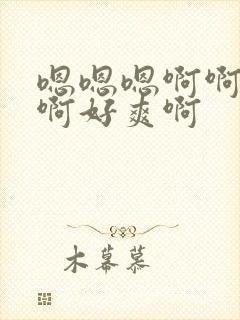 嗯嗯嗯啊啊
啊好爽啊
木幕慕